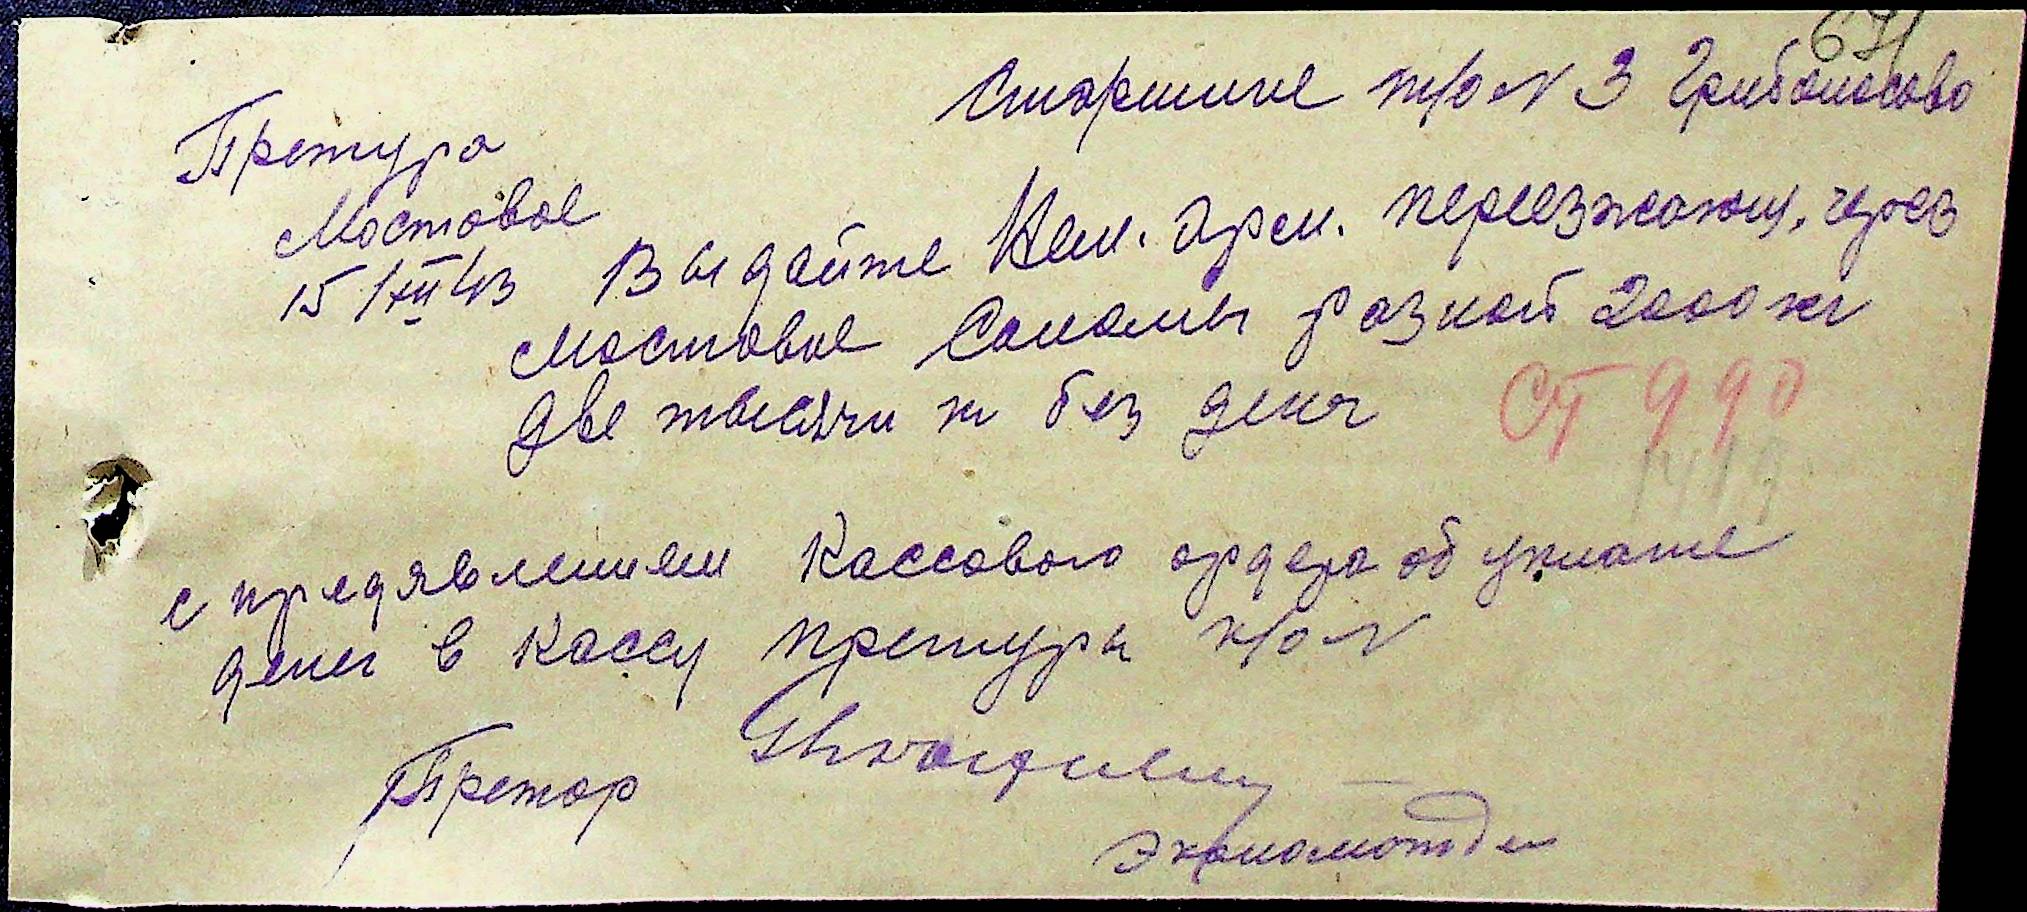 671
Старшине т/о N 3 Грибоносово
Претура
Мостовое
15/XII 43 Выдайте Нем. Арм. переезжающ. через
Мостовое Соломы разной 2000 кг
две тысячи кг без денг
СТ 990
1419
с предявлением кассового ордера об уплате
денег в кассу претуры т/о N
Претор
Экономотдел